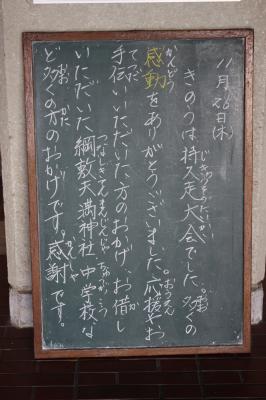 11月26日(木)
きのうは持久走大会でした。多くの
感動をありがとうございました。応援やお
手伝いいただいた方のおかげ、お借し
いただいた綱敷天満神社、中学校な
ど多くの方のおかげです。感謝です。